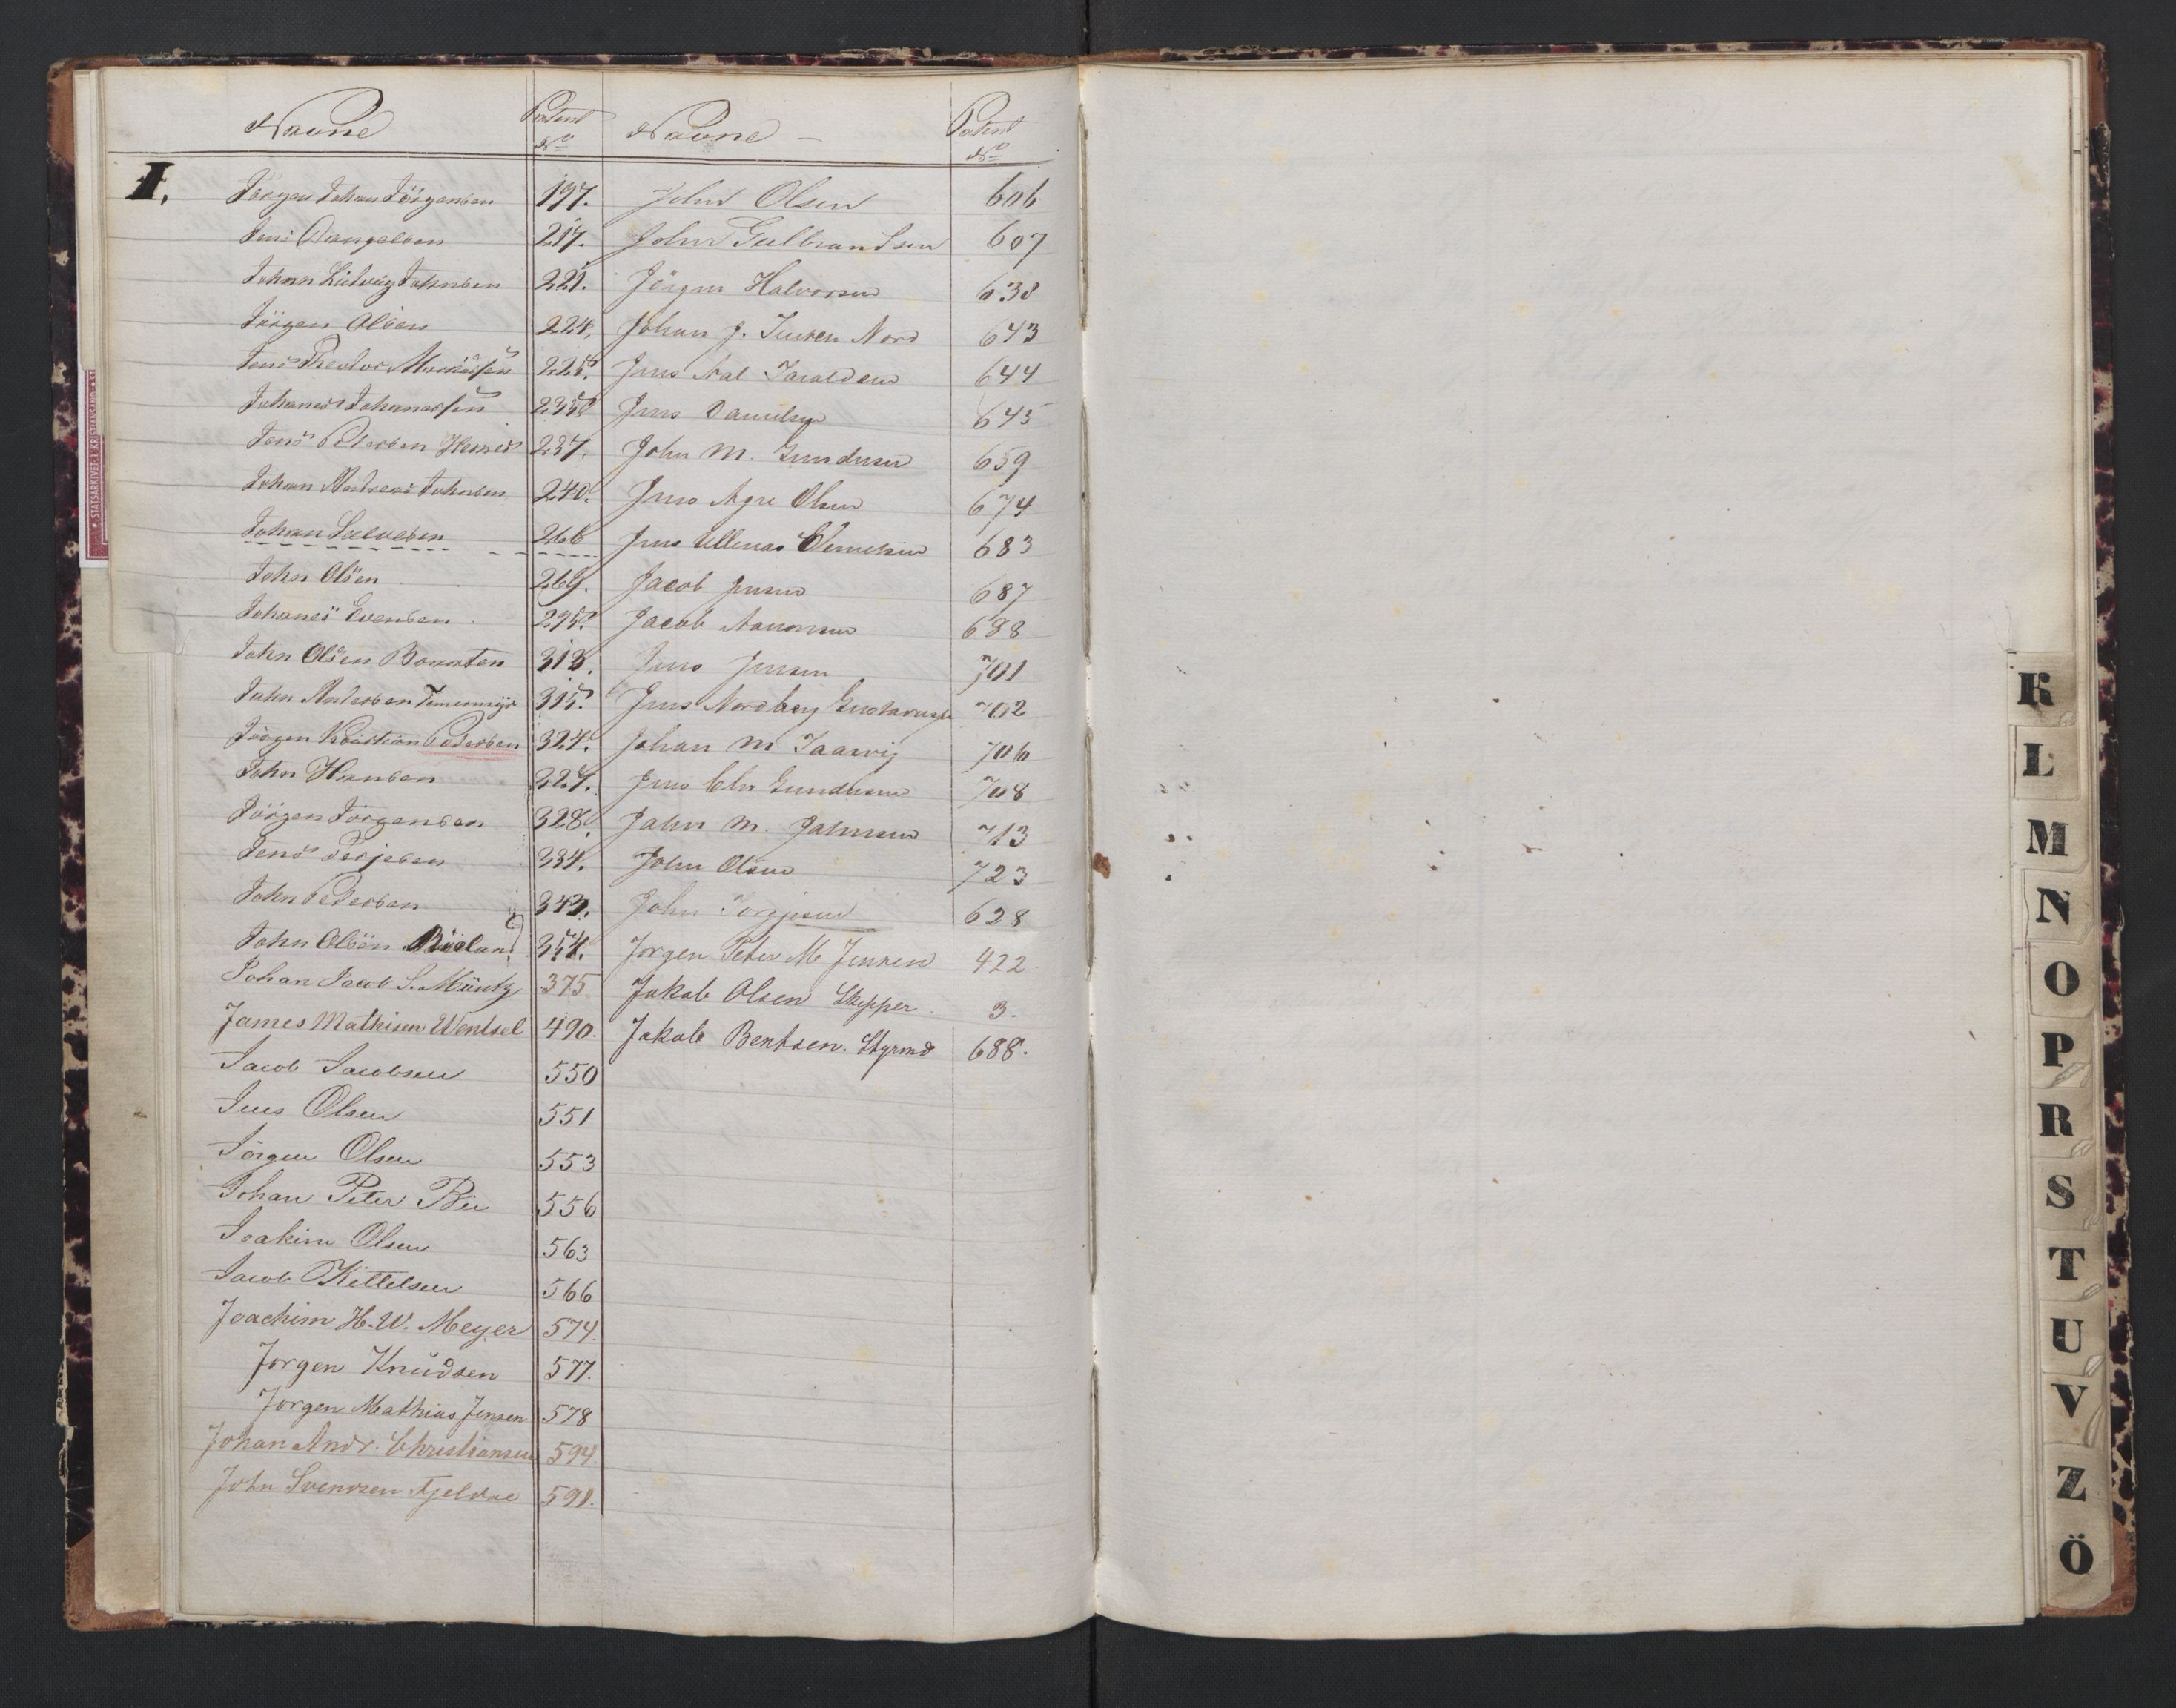 I.
Navne
Patent No
Jörgen Johan Jörgensen 197.
Jens 217.
Johan Ludvig Johnsen 221.
Jörgen Olsen 224.
Jens Theodor 225.
Johanes Johanessen 235.
Jens Pedersen 237.
Johan Andreas Johnsen 240.
Johan Salvesen 266
John Olsen 269.
Johanes Evensen 295.
John Olsen 313.
John Andersen 315.
Jörgen Kristian Pedersen 324.
John Hansen 327.
Jörgen Jörgensen 328.
Jens Terjesen 334.
John Pedersen 343.
John Olsen 354.
Johan Jacob S. Müntz 375
James Mathisen Wentsel 490.
Jacob Jacobsen 550
Jens Olsen 551
Jörgen Olsen 553
Johan Peter Bie 556
Joakim Olsen 563
Jacob Kittelsen 566
Joachim H. W. Meyer 574.
Jorgen Knudsen 577.
Jorgen Mathias Jensen 578
Johan Andr. Christiansen 594.
John Svendsen 591.
Navne
Patent No
John Olsen 606
John Gulbrandsen 607
Jörgen Halvorsen 638
Johan J. Jensen Nord 643
Jens Taraldsen 644
Jens Danielsen 645
John M. Gundersen 659
Jens Agre Olsen 674
Jens Ullenas 683
Jacob Jensen 687
Jacob Aanonsen 688
Jens Jensen 701
Jens Nordberg Gustavusen 702
Johan M Taarvig 706
Jens Chr Gundersen 708
John M. Johnsen 713
John Olsen 723
John Torgjesen 628
Jorgen Peter M Jensen 422
Jakob Olsen Skipper. 3.
Jakob Bentsen. Styrmd 688.
K
L
M
N
O
P
R
S
T
U
V
Z
Ö